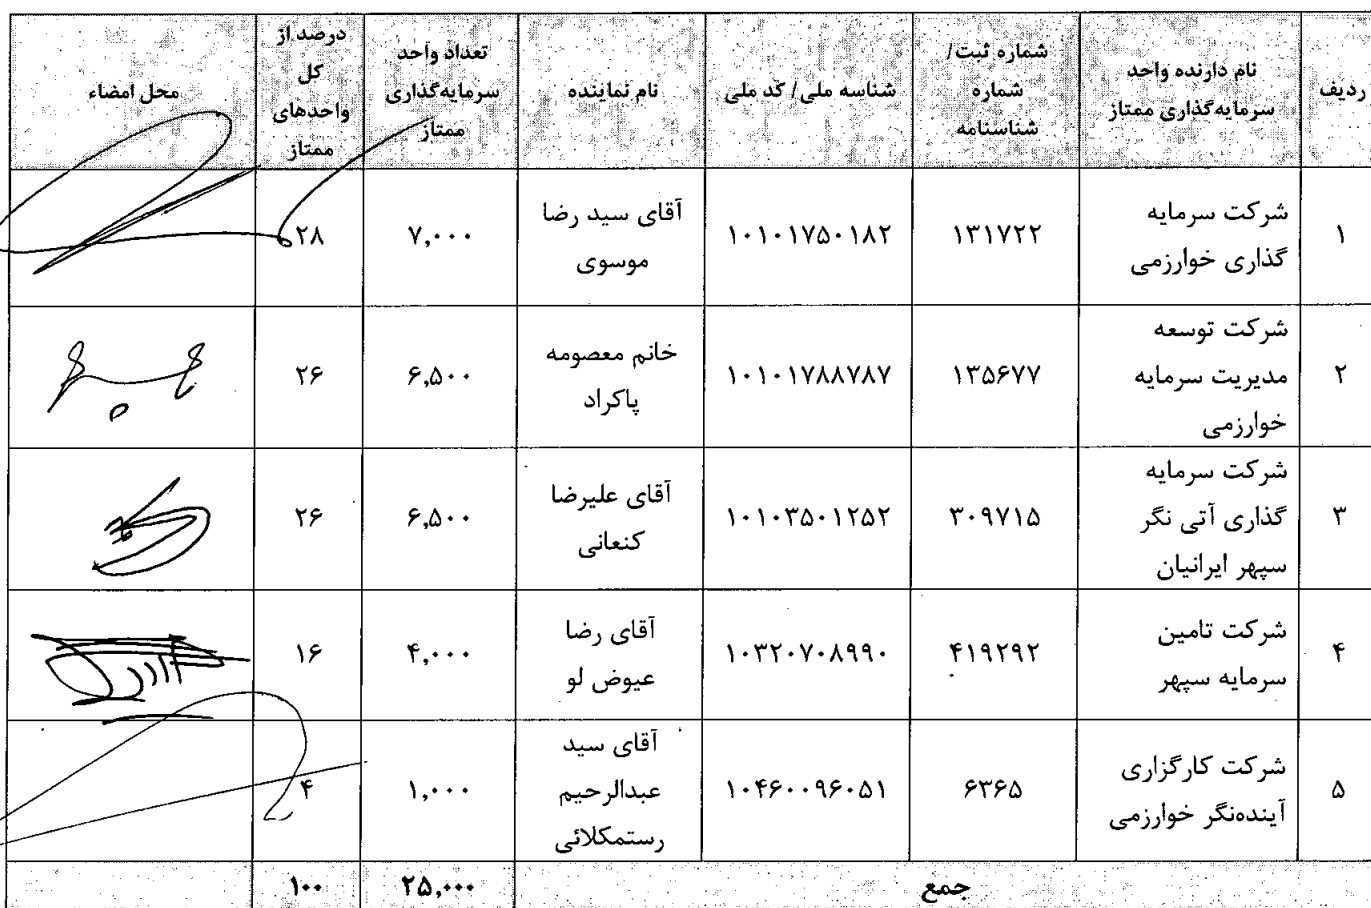 ردیف
نام دارنده واحد
سرمایه‌گذاری ممتاز
شماره ثبت/
شماره
شناسنامه
شناسه ملی/ کد ملی
نام نماینده
تعداد واحد
سرمایه‌گذاری
ممتاز
درصد از
کل
واحدهای
ممتاز
محل امضاء
۱
شرکت سرمایه
گذاری خوارزمی
۱۳۱۷۲۲
۱۰۱۰۱۷۵۰۱۸۲
آقای سید رضا
موسوی
۷,۰۰۰
۲۸
۲
شرکت توسعه
مدیریت سرمایه
خوارزمی
۱۳۵۶۷۷
۱۰۱۰۱۷۸۸۷۸۷
خانم معصومه
پاکراد
۶,۵۰۰
۲۶
۳
شرکت سرمایه
گذاری آتی نگر
سپهر ایرانیان
۳۰۹۷۱۵
۱۰۱۰۳۵۰۱۲۵۲
آقای علیرضا
کنعانی
۶,۵۰۰
۲۶
۴
شرکت تامین
سرمایه سپهر
۴۱۹۲۹۲
۱۰۳۲۰۷۰۸۹۹۰
آقای رضا
عیوض لو
۴,۰۰۰
۱۶
۵
شرکت کارگزاری
آینده‌نگر خوارزمی
۶۳۶۵
۱۰۴۶۰۰۹۶۰۵۱
آقای سید
عبدالرحیم
رستمکلائی
۱,۰۰۰
۴
جمع
۲۵,۰۰۰
۱۰۰